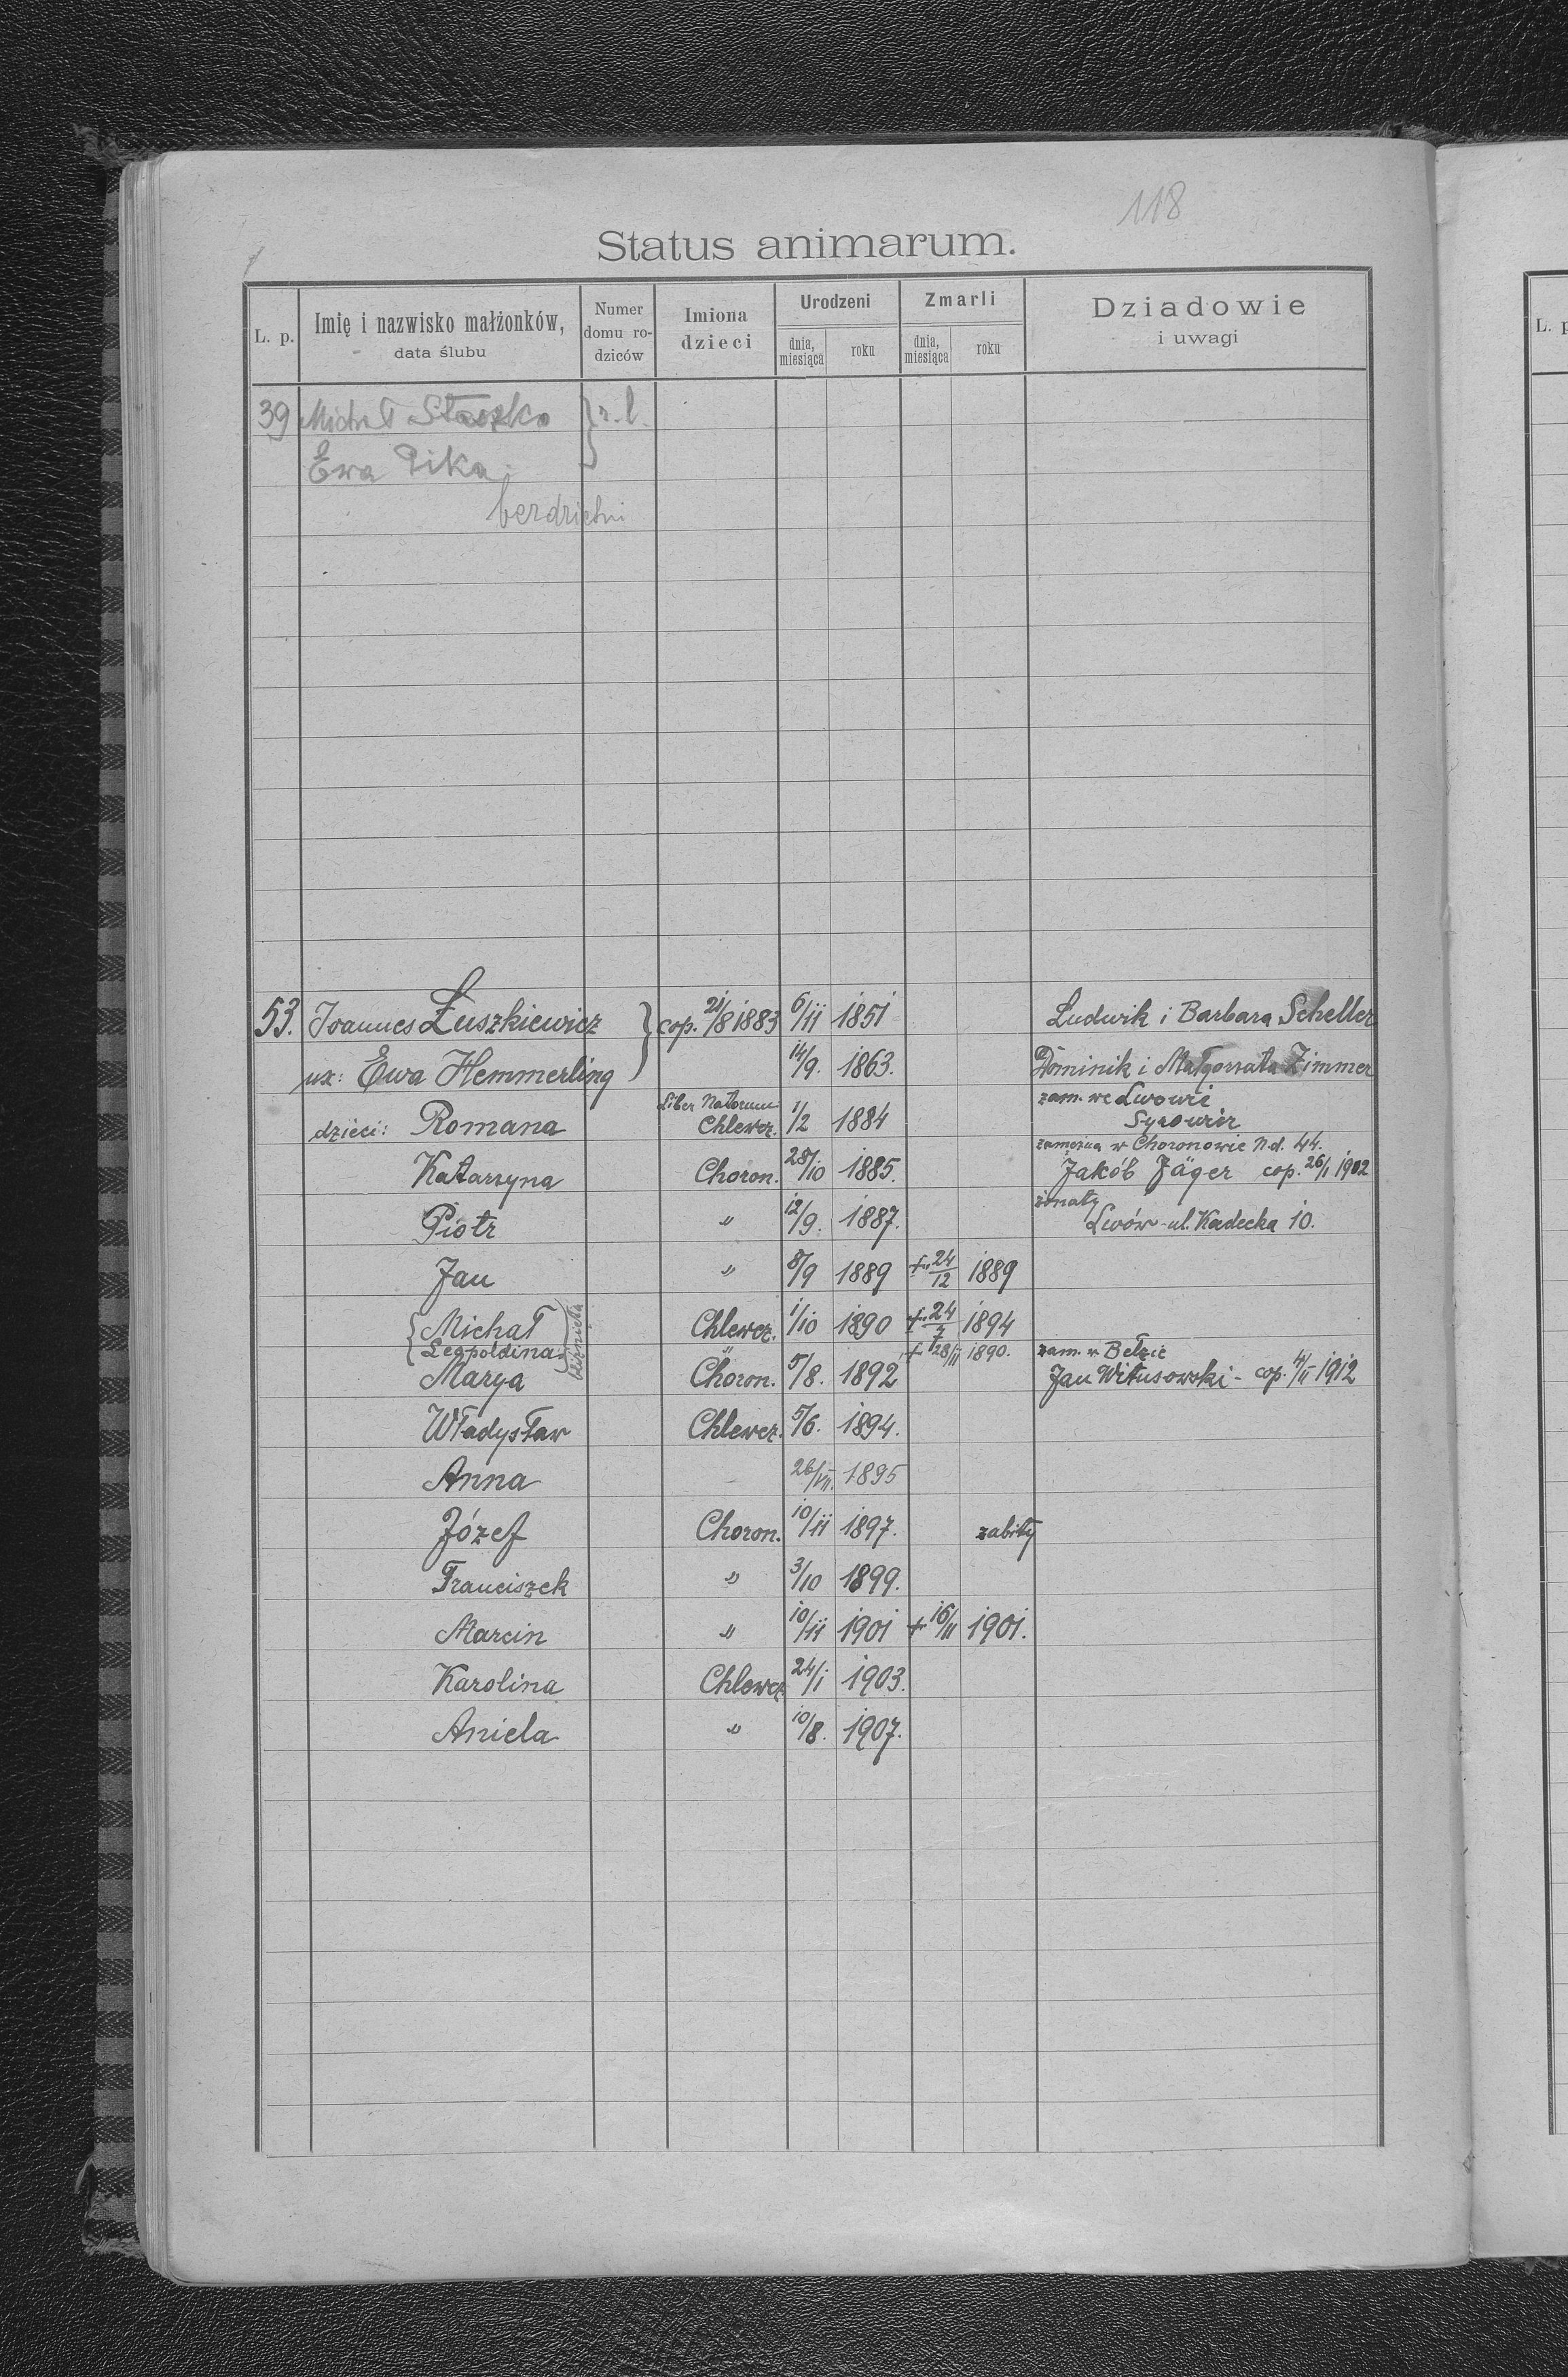 118
Status animarum.
L. p. Imię i nazwisko małżonków, data ślubu Numer domu ro-dziców Imiona dzieci Urodzeni dnia, miesiąca roku Zmarli dnia, miesiąca roku Dziadowie i uwagi
39 Michał } r. l.
Ewa Pika
bezdzietni
53. Joannes Łuszkiewicz } cop. 21/8 1883 6/11 1851 Ludwik i Barbara Scheller
ux: Ewa Hemmerling 14/9. 1863. Dominik i Małgorzata Zimmer
zam. we Lwowie
dzieci: Romana Liber Natorum Chlewcz. 1/2 1884
zamężna w Choronowie N.d. 44.
Katarzyna Choron. 28/10 1885. Jakób Jäger cop. 26/1 1902
żonaty
Piotr " 12/9. 1887. Lwów - ul. Kadecka 10.
Jan " 8/9 1889 + 24/12 1889
{ Michał Chlewcz. 1/10 1890 + 24/7 1894
Leopoldina } bliźnięta " + 28/11 1890. zam. w Bełzie
Marya Choron. 5/8. 1892 Jan Witusowski - cop. 4/II 1912
Władysław Chlewcz. 5/6. 1894.
Anna - 26/VII. 1895
Józef Choron. 10/11 1897. zabity
Franciszek " 3/10 1899.
Marcin " 10/11 1901 + 16/11 1901.
Karolina Chlewcz 24/1 1903.
Aniela " 10/8. 1907.
L. p